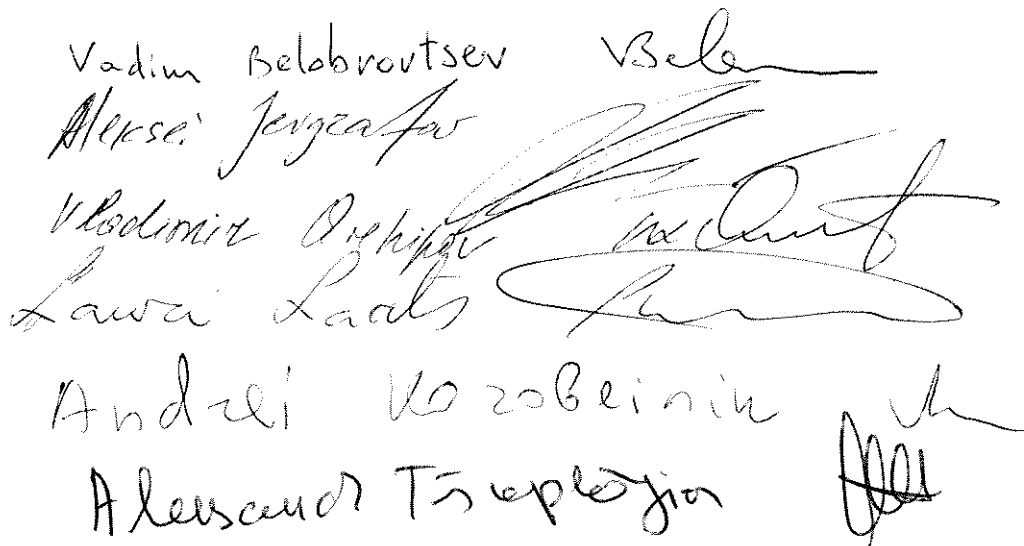 Vadim Belobrovtsev
Aleksei Jevgrafov
Vladimir Arhipov
Lauri Laats
Andrei Korobeinik
Aleksandr Tšaplõgin